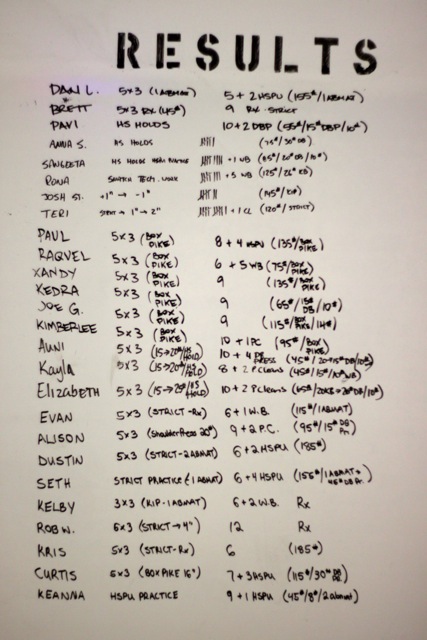 RESULTS
DANI L. 5x3 (1 ABMAT) 5+2 HSPU (155#/1ABMAT)
BRETT 5x3 RX (45#) 9 RX STRICT
PAVI HS HOLDS 10+2 DBP (55#/15#DBP/10#)
ANNA S. HS HOLDS (75#/30#DB)
SANGEETA HS HOLDS +1 WB (85#/20#DB/10#)
RONA TECH. WORK +3 WB (125#/26#KB)
JOSH ST. +1" → -1"
TERI STRICT → 1" → 2" +1 CL (120#/STRICT)
PAUL 5x3 (BOX PIKE) 8+4 HSPU (135#/BOX PIKE)
RAQUEL 5x3 (BOX PIKE) 6+5 WB (75#/BOX PIKE)
XANDY 5x3 (BOX PIKE) 9 (135#/BOX PIKE)
KEDRA 5x3 (BOX PIKE)
JOE G. 5x3 (BOX PIKE) 9 (65#/15#DB/10#)
KIMBERLEE 5x3 (BOX PIKE) 9 (115#/BOX PIKE/14#)
AUNI 5x3 (15→20#/HS HOLD) 10+1PC (95#/BOX PIKE)
Kayla 5x3 (15→20#/HS HOLD) 10+4 PRESS
Elizabeth 5x3 (15→25#/HS HOLD) 10+2 PCleans
EVAN 5x3 (STRICT-RX) 6+1 W.B. (115#/1ABMAT)
ALISON 5x3 (Shoulder Press 20#) 9+2 P.C. (95#/15#DB Pr.)
DUSTIN 5x3 (STRICT-2ABMAT) 6+2HSPU (185#)
SETH STRICT PRACTICE (1 ABMAT) 6+4HSPU (155#/1ABMAT +45#DB Pr.)
KELBY 3x3 (KIP-1ABMAT) 6+2 W.B. Rx
ROB W. 5x3 (STRICT → 4") 12 Rx
KRIS 5x3 (STRICT-Rx) 6 (185#)
CURTIS 5x3 (BOX PIKE 16") 7+3HSPU (115#/30#DB Pr.)
KEANNA HSPU PRACTICE 9+1 HSPU (45#/8#/2abmat)